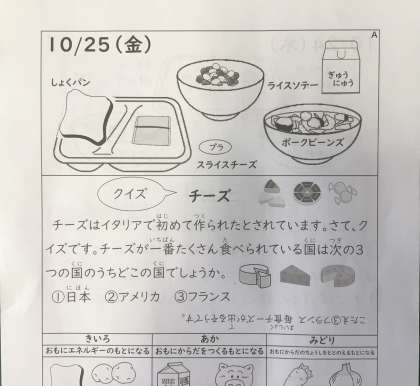 A
10/25(金)
しょくパン
ライスソテー
ぎゅう
にゅう
プラ
スライスチーズ
ポークビーンズ
クイズ
チーズ
チーズはイタリアで初めて作られたとされています。さて、ク
イズです。チーズが一番たくさん食べられている国は次の3
つの国のうちどこの国でしょうか。
①日本 ②アメリカ ③フランス
こたえ③フランス 毎食チーズが出るそうです。
きいろ
あか
みどり
おもにエネルギーのもとになる
おもにからだをつくるもとになる
おもにからだのちょうしをととのえるもとになる